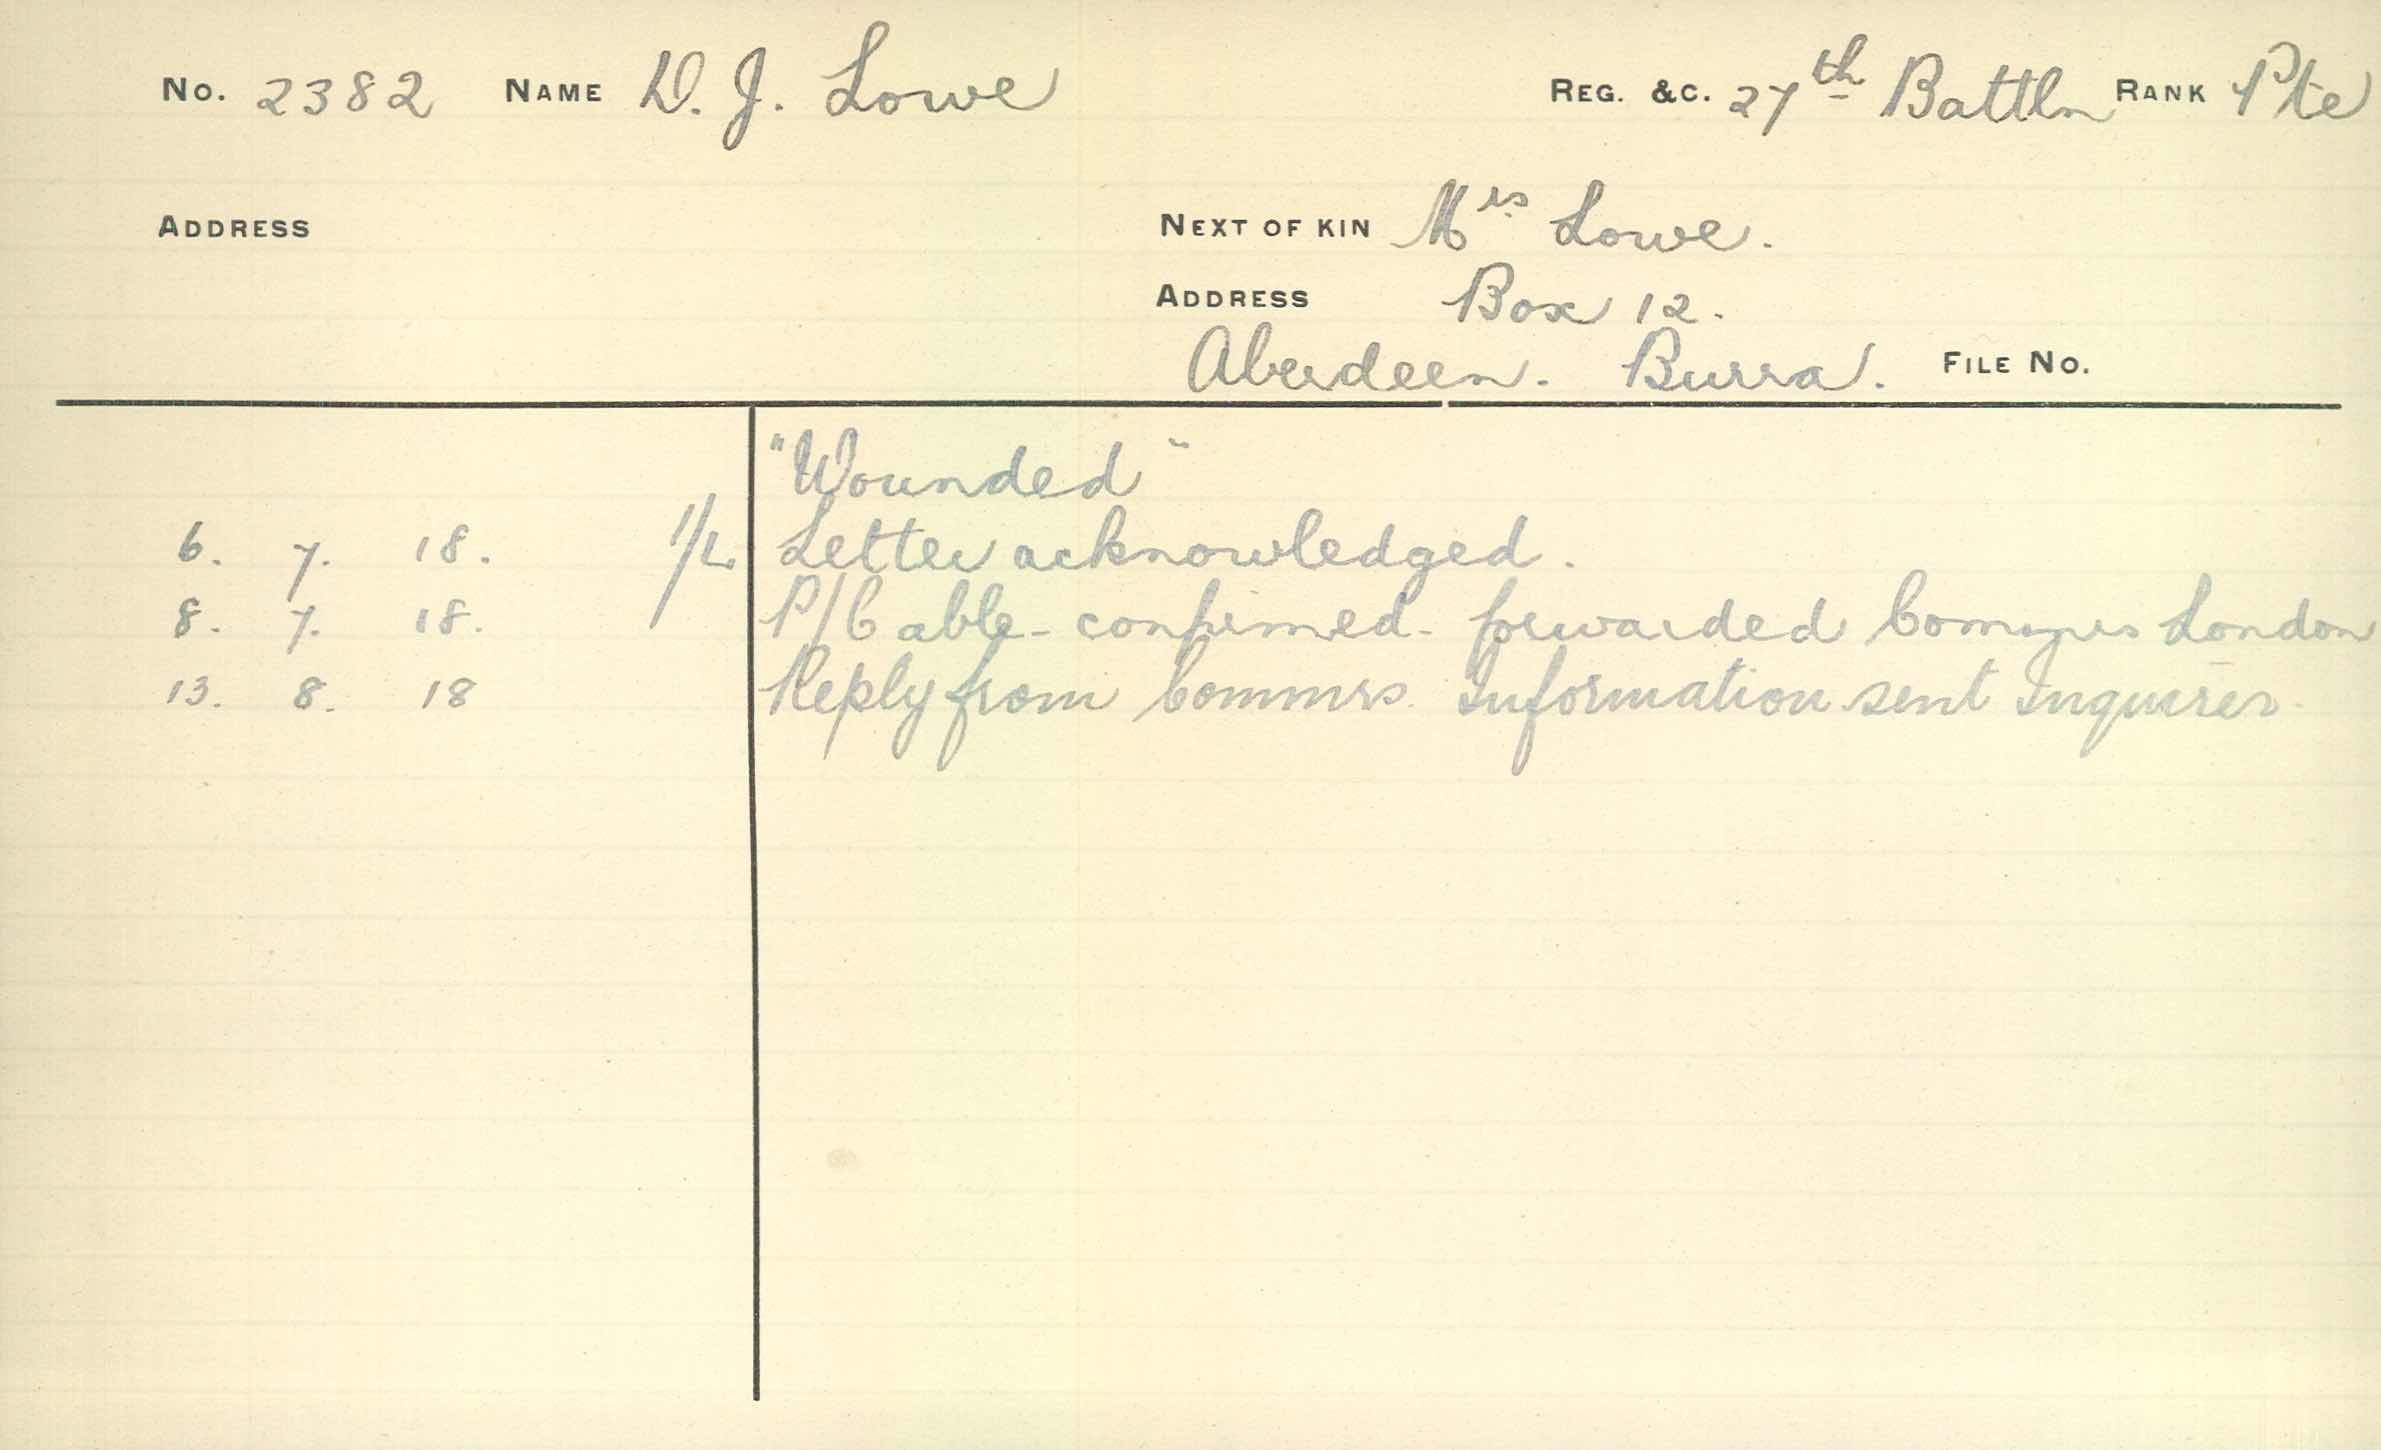 No. 2382 NAME D. J. Lowe REG. &C. 27th Battln RANK Pte
ADDRESS NEXT OF KIN Mrs Lowe.
ADDRESS Box 12.
Aberdeen. Burra. FILE No.
"Wounded"
6. 7. 18. 1/L Letter acknowledged.
8. 7. 18. P/Cable - confirmed - forwarded Commrs London
13. 8. 18 Reply from Commrs. Information sent Inquirer.